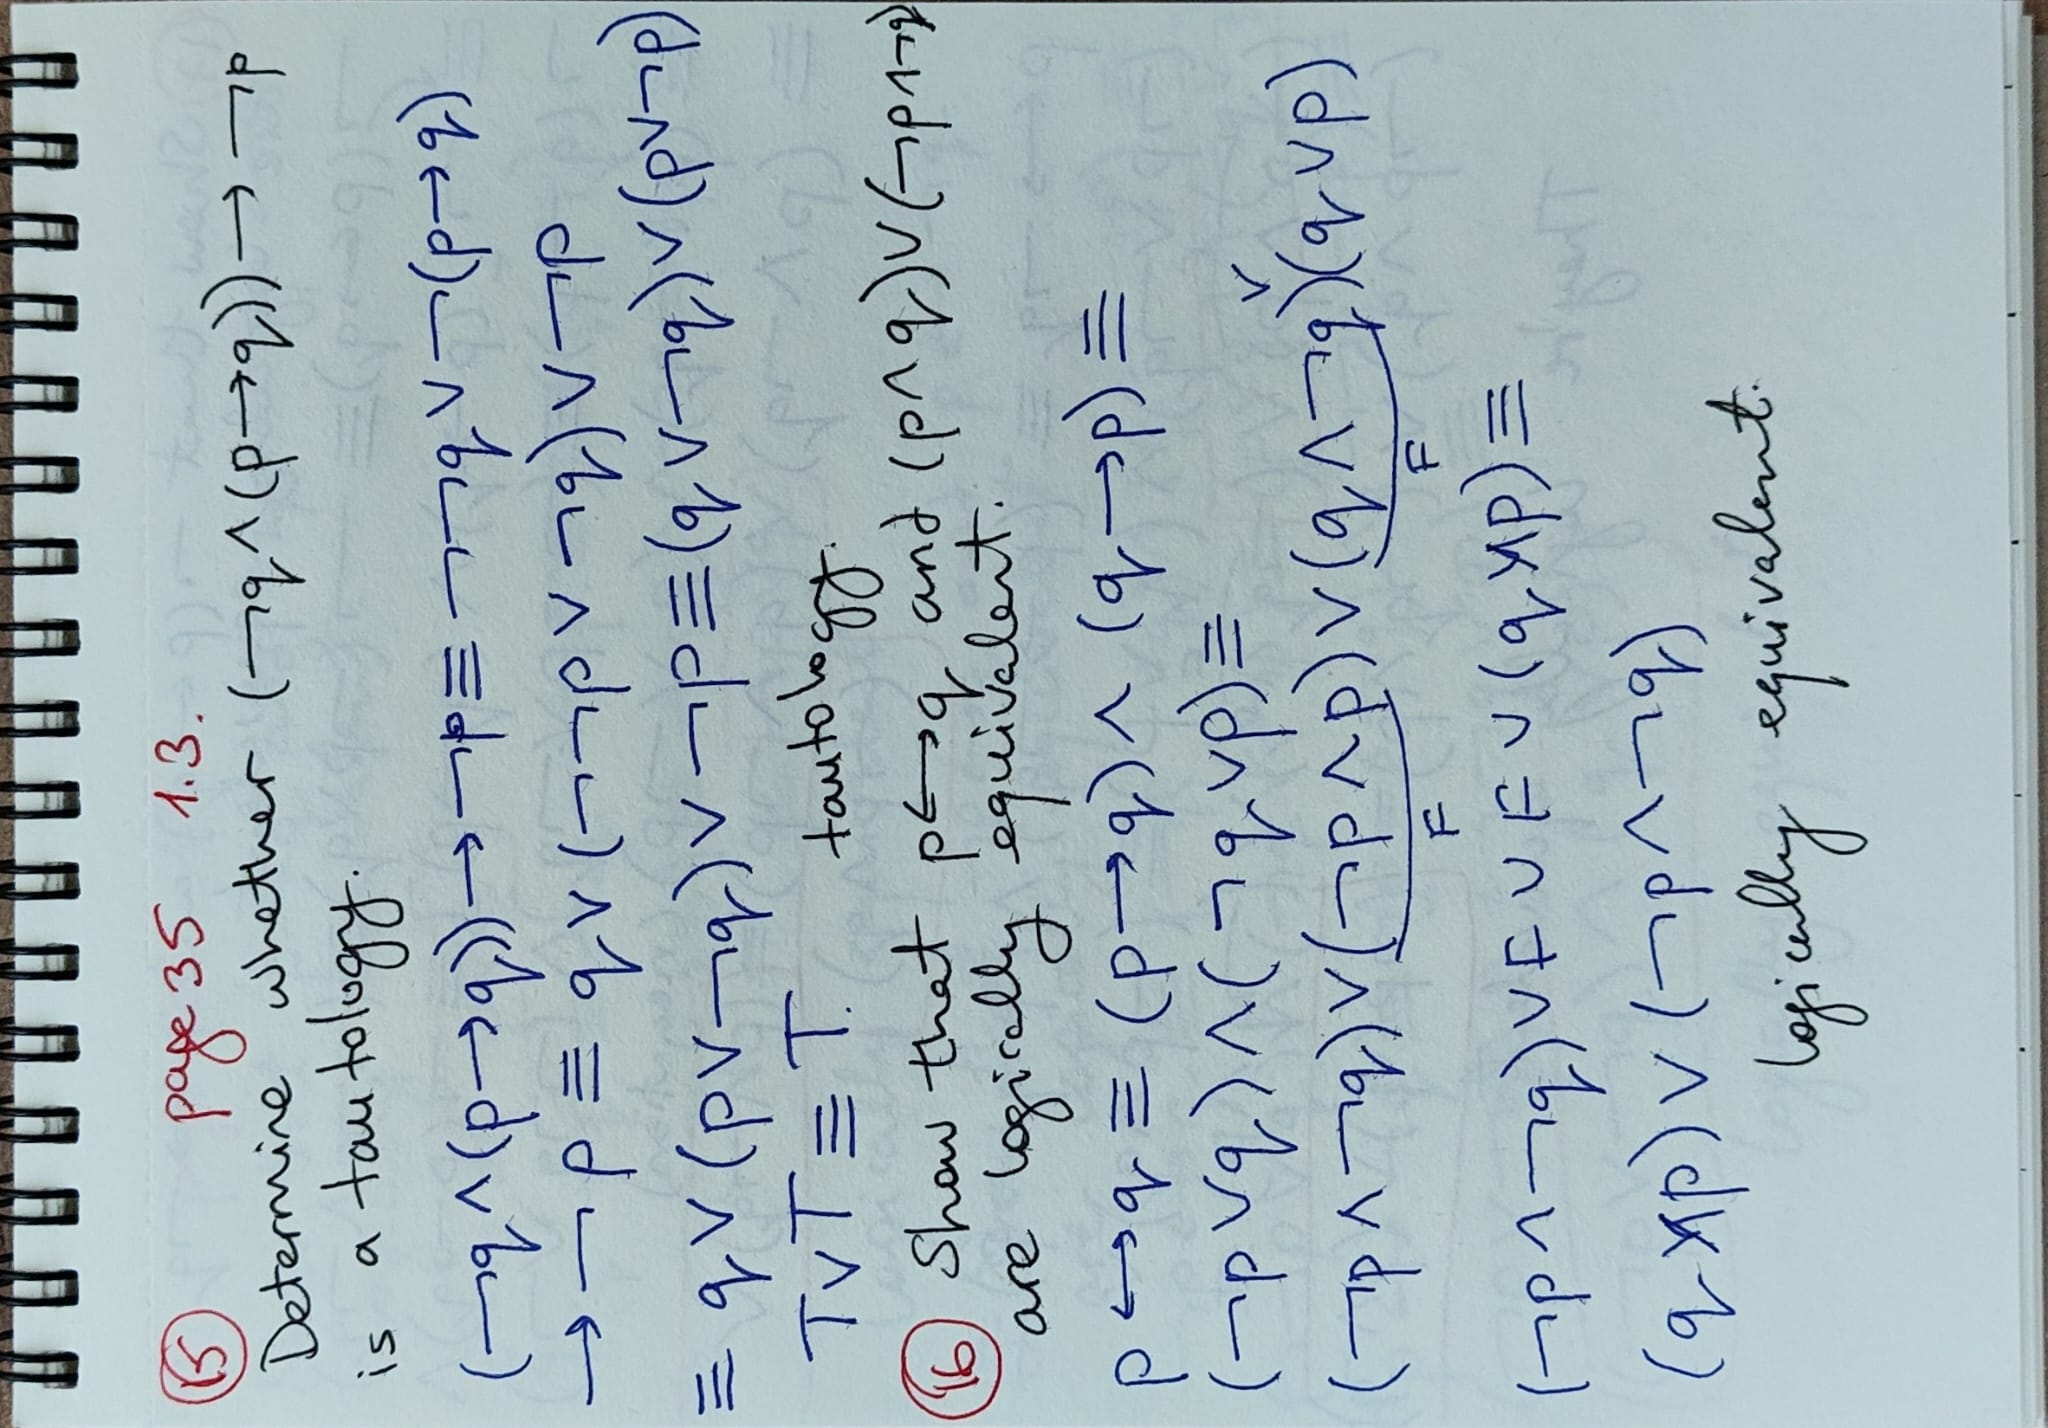 15 page 35 1.3.
Determine whether (¬q∧(p→q))→¬p
is a tautology.
(¬q∧(p→q))→¬p ≡ ¬¬q ∨ ¬(p→q)
→ ¬p ≡ q∨(¬¬p ∨ ¬q) ∨ ¬p
≡ q∨(p∨¬q) ∨ ¬p ≡ (q∨¬q)∨(p∨¬p)
T∨T ≡ T. tautology.
16 Show that p↔q and (p∧q)∨(¬p∧¬q)
are logically equivalent.
p↔q ≡ (p→q)∧(q→p) ≡
(¬p∨q)∧(¬q∨p) ≡
(¬p∧¬q)∨(¬p∧p)∨(q∧¬q)∨(q∧p)
F F
(¬p∧¬q)∨F∨F∨(q∧p) ≡
(q∧p)∨(¬p∧¬q)
logically equivalent.